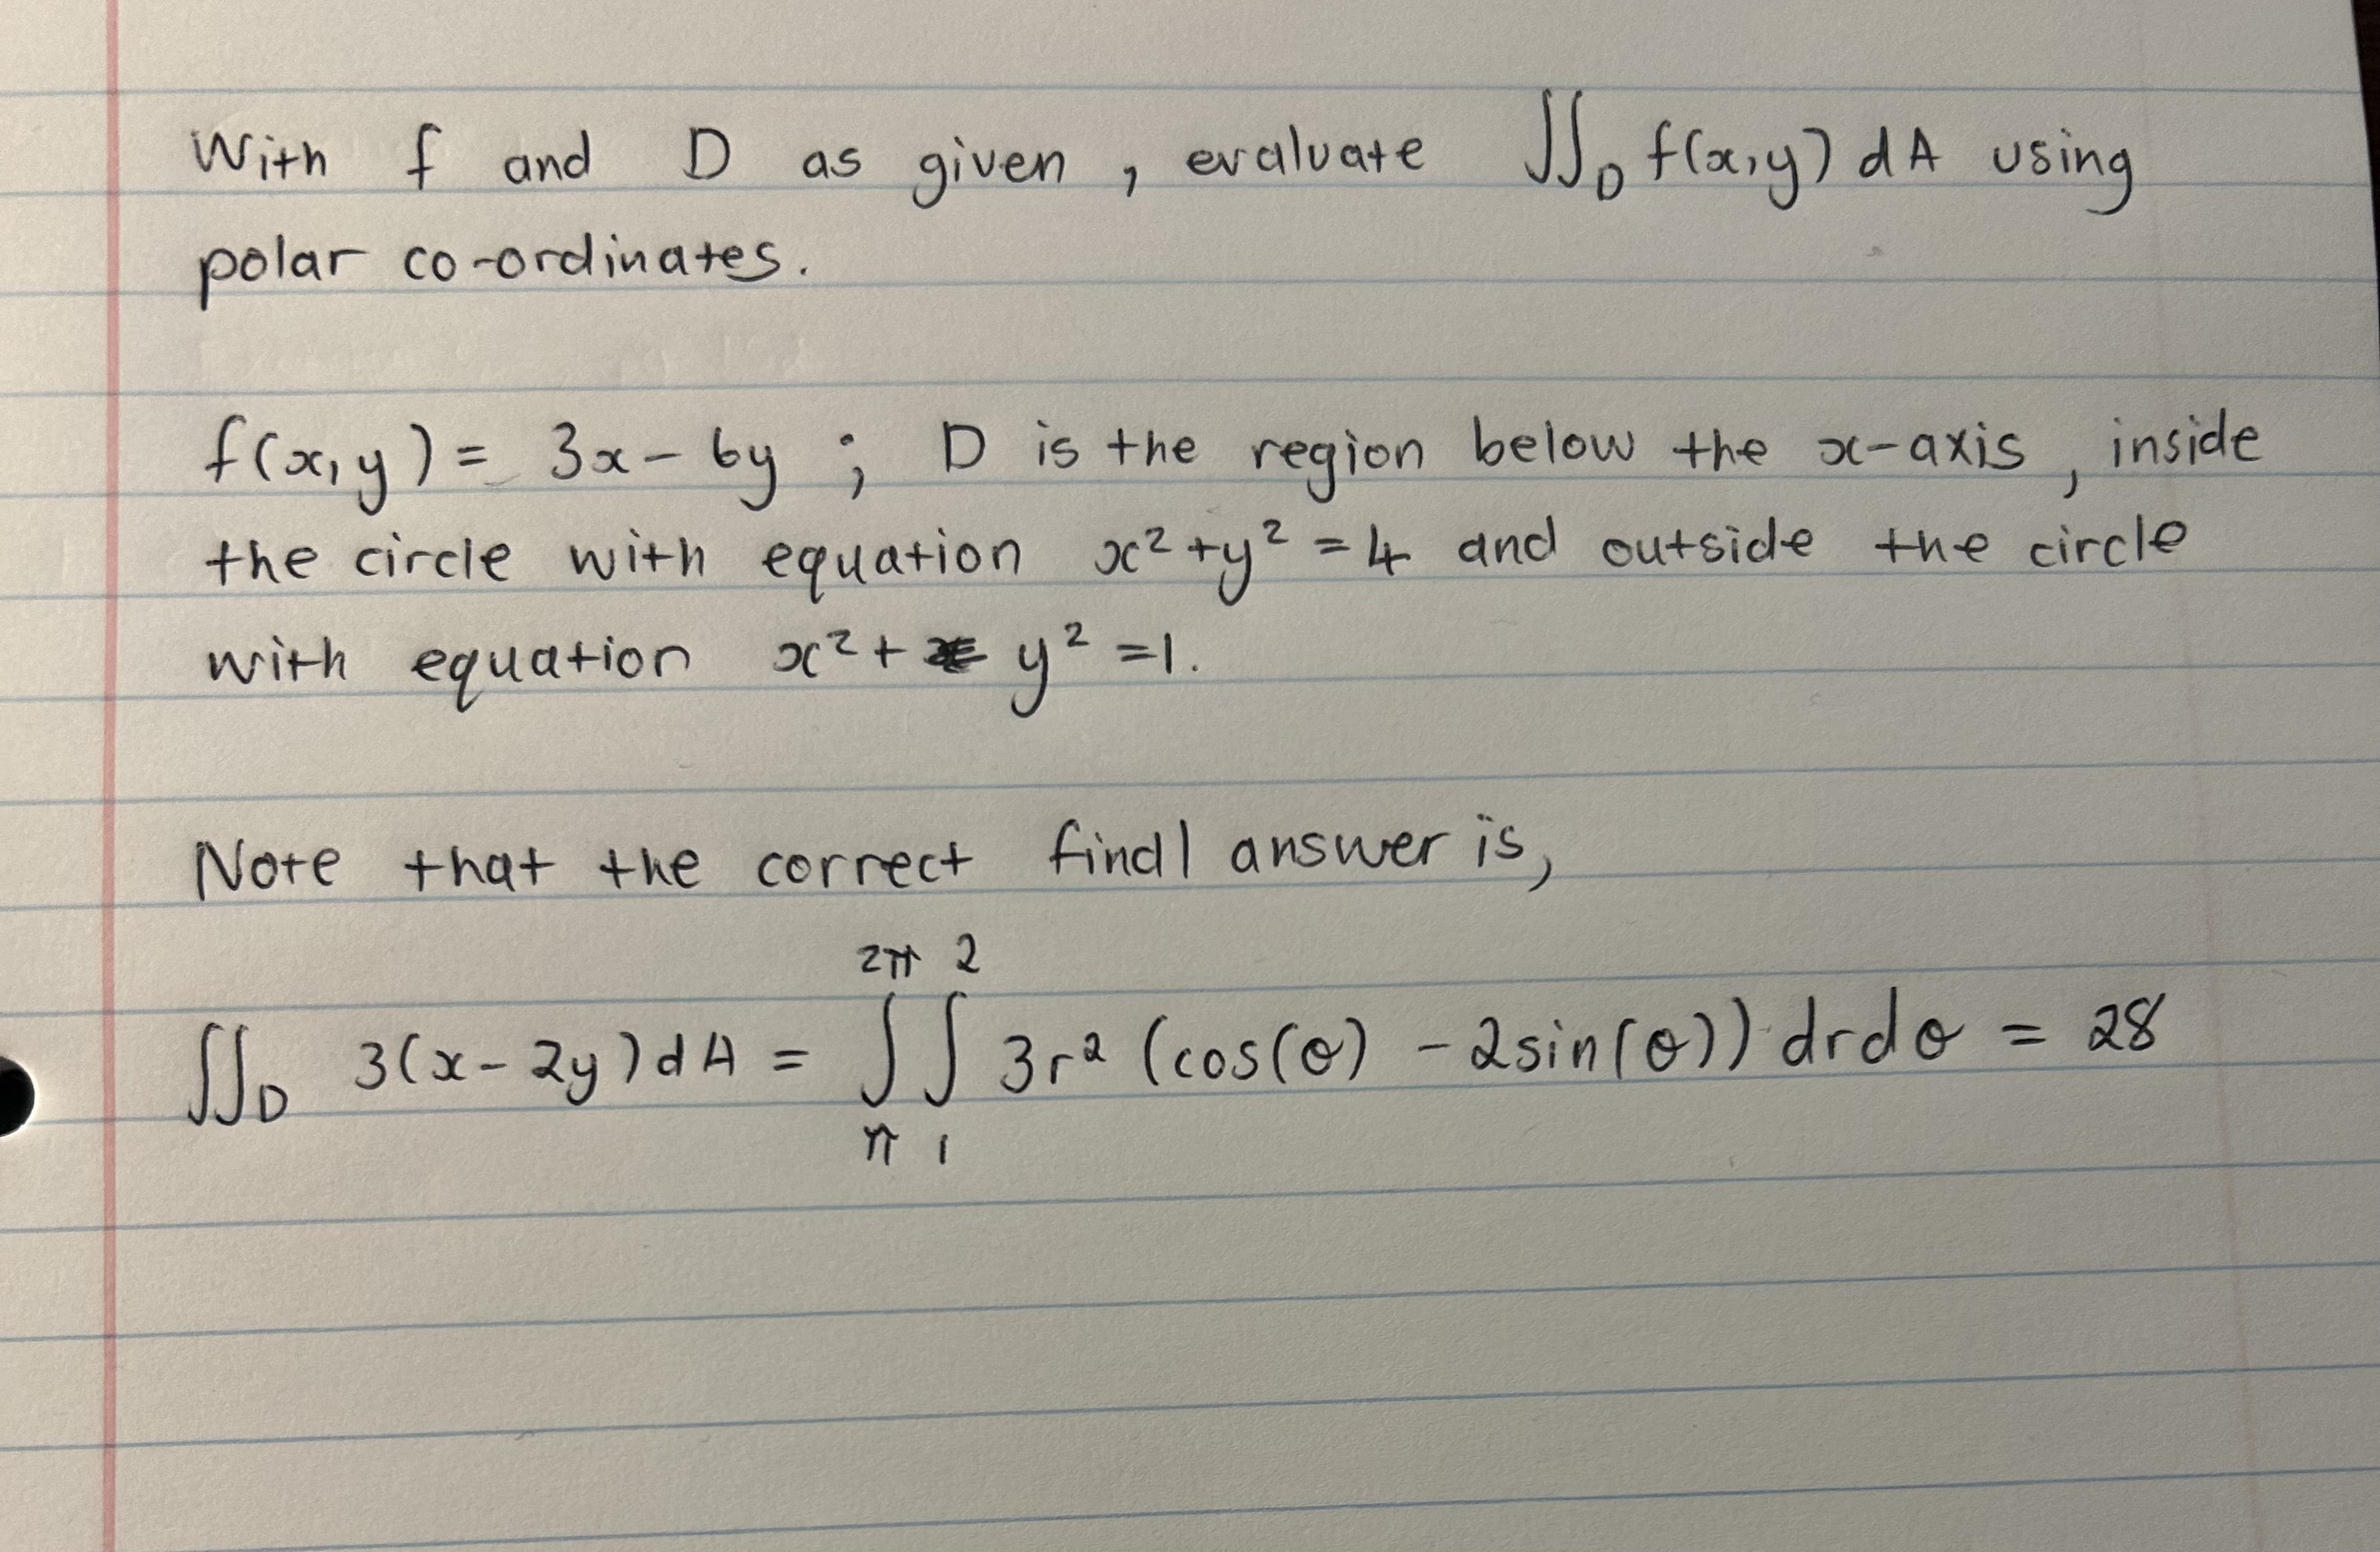 With f and D as given, evaluate ∬_D f(x,y) dA using
polar co-ordinates.
f(x,y) = 3x - 6y ; D is the region below the x-axis, inside
the circle with equation x² + y² = 4 and outside the circle
with equation x² + y² = 1.
Note that the correct final answer is,
∬_D 3(x - 2y) dA = ∫_π^{2π} ∫_1^2 3r² (cos(θ) - 2sin(θ)) dr dθ = 28